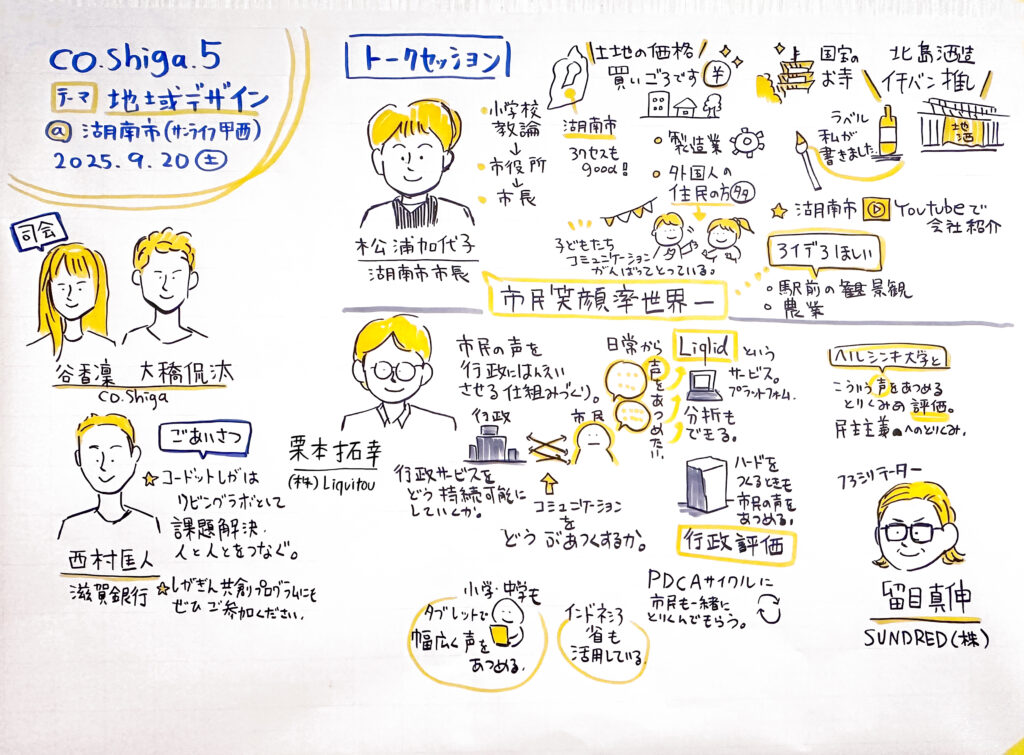 co.shiga.5
テーマ 地域デザイン
@ 湖南市(サンライフ甲西)
2025.9.20(土)
司会
谷香凛 大橋侃汰
co.shiga
ごあいさつ
コードットしがは
リビングラボとして
課題解決.
人と人とをつなぐ。
しがぎん共創プログラムにも
ぜひご参加ください.
西村匡人
滋賀銀行
トークセッション
・小学校
教諭
↓
・市役所
↓
・市長
松浦加代子
湖南市市長
土地の価格
買いごろです ¥
湖南市
アクセスも
good!
・製造業
・外国人の
住民の方多
子どもたち
コミュニケーション
がんばってとっている。
国宝の
お寺
北島酒造
イチバン推し
ラベル
私が
書きました
地酒
湖南市 Youtubeで
会社紹介
アイデアほしい
・駅前の観景観
・農業
市民笑顔率世界一
栗本拓幸
(株)Liquitou
市民の声を
行政にはんえい
させる仕組みづくり。
行政
市民
行政サービスを
どう持続可能に
していくか。
コミュニケーション
を
どうぶあつくするか。
日常から
声をあつめたい
Liqlidという
サービス。
プラットフォーム.
分析も
できる。
ハードを
つくるときも
市民の声を
あつめる。
行政評価
PDCAサイクルに
市民も一緒に
とりくんでもらう。
小学・中学も
タブレットで
幅広く声を
あつめる.
インドネシア
省も
活用している.
ヘルシンキ大学と
こういう声をあつめる
とりくみの評価。
民主主義へのとりくみ.
ファシリテーター
留目真伸
SUNDRED(株)